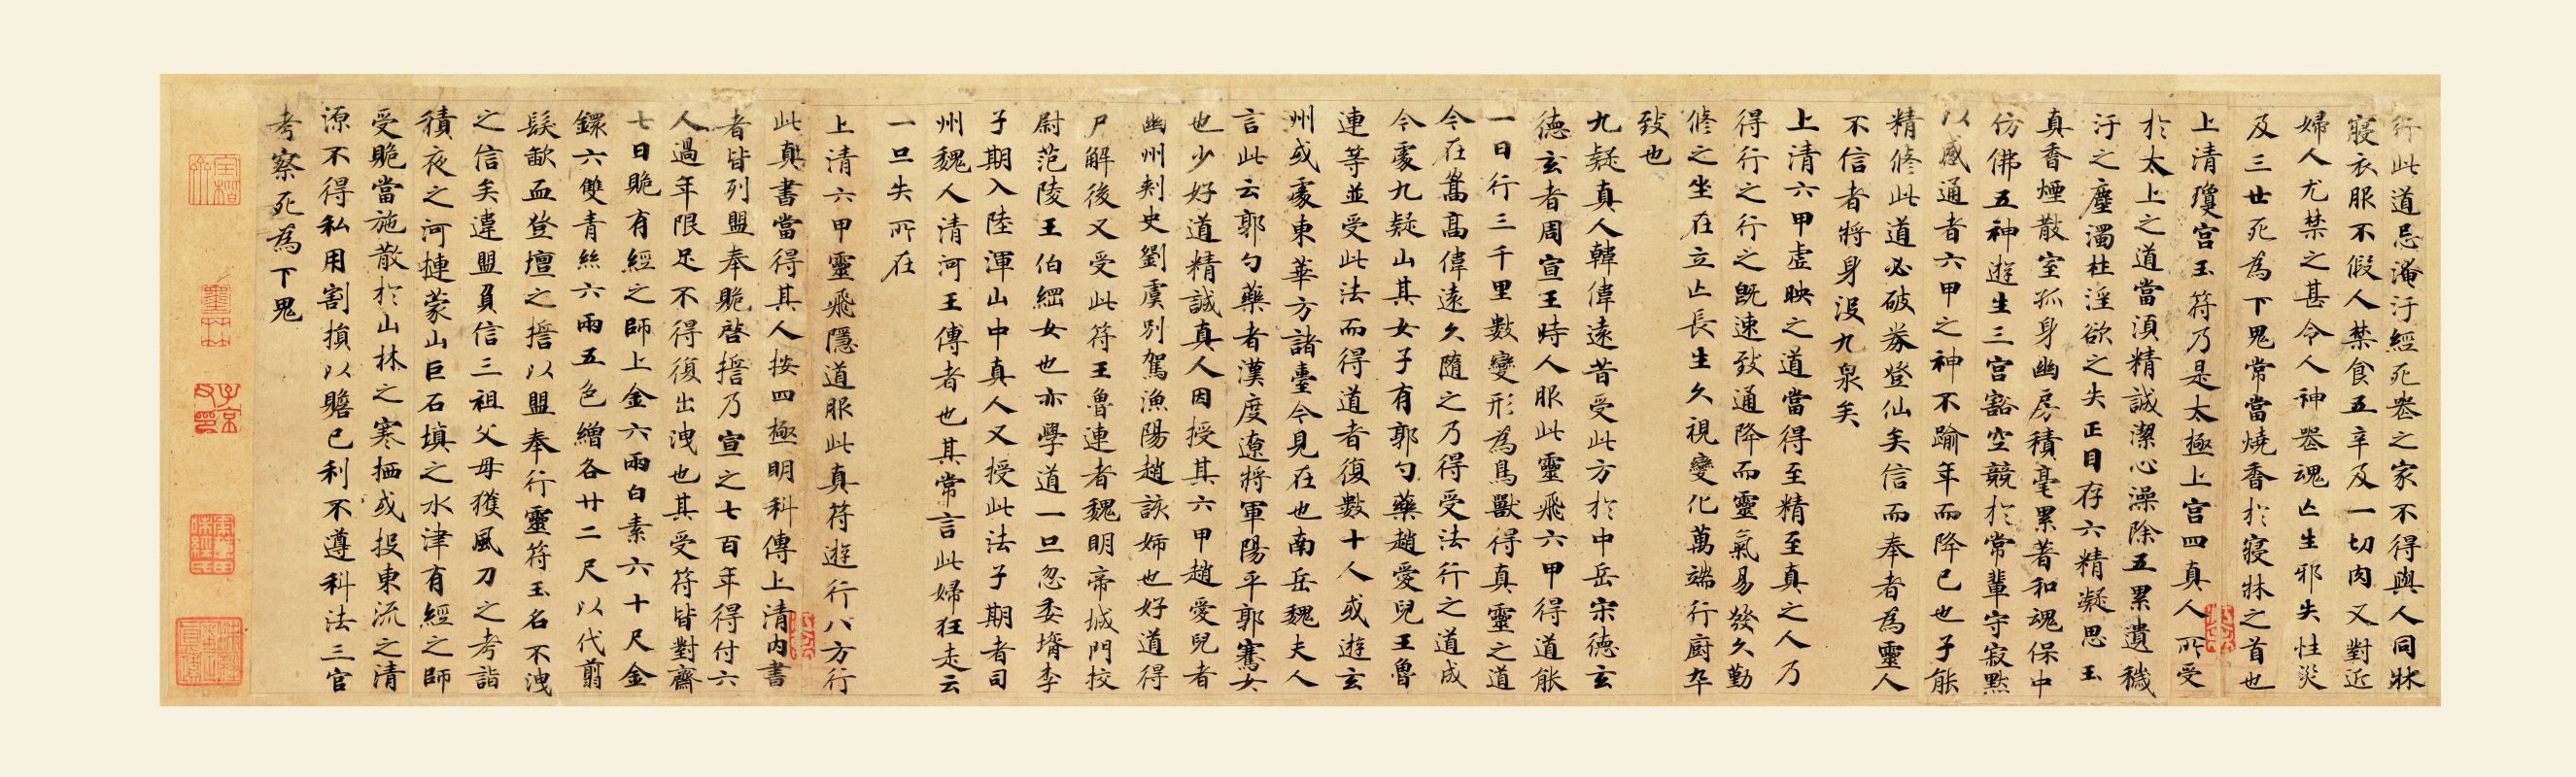 行此道忌淹汙經死喪之家不得與人同牀
寢衣服不假人禁食五辛及一切肉又對近
婦人尤禁之甚令人神喪魂亡生邪失性災
及三世死為下鬼常當燒香於寢牀之首也
上清瓊宮玉符乃是太極上宮四真人所受
於太上之道當須精誠潔心澡除五累遺穢
汙之塵濁杜淫欲之失正目存六精凝思玉
真香煙散室孤身幽房積毫累著和魂保中
仿佛五神遊生三宮豁空競於常輩守寂默
以感通者六甲之神不踰年而降已也子能
精修此道必破券登仙矣信而奉者為靈人
不信者將身沒九泉矣
上清六甲虛映之道當得至精至真之人乃
得行之行之既速致通降而靈氣易發久勤
修之坐在立亡長生久視變化萬端行廚卒
致也
九疑真人韓偉遠昔受此方於中岳宋德玄
德玄者周宣王時人服此靈飛六甲得道能
一日行三千里數變形為鳥獸得真靈之道
今在嵩高偉遠久隨之乃得受法行之道成
今處九疑山其女子有郭勺藥趙愛兒王魯
連等並受此法而得道者復數十人或遊玄
州或處東華方諸臺今見在也南岳魏夫人
言此云郭勺藥者漢度遼將軍陽平郭騫女
也少好道精誠真人因授其六甲趙愛兒者
幽州刺史劉虞別駕漁陽趙該姊也好道得
尸解後又受此符王魯連者魏明帝城門校
尉范陵王伯綱女也亦學道一旦忽委壻李
子期入陸渾山中真人又授此法子期者司
州魏人清河王傳者也其常言此婦狂走云
一旦失所在
上清六甲靈飛隱道服此真符遊行八方行
此真書當得其人按四極明科傳上清內書
者皆列盟奉貺啓誓乃宣之七百年得付六
人過年限足不得復出洩也其受符皆對齋
七日貺有經之師上金六兩白素六十尺金
鐶六雙青絲六兩五色繒各廿二尺以代翦
髮歃血登壇之誓以盟奉行靈符玉名不洩
之信矣違盟負信三祖父母獲風刀之考詣
積夜之河摙蒙山巨石填之水津有經之師
受貺當施散於山林之寒栖或投東流之清
源不得私用割損以贍已利不遵科法三官
考察死為下鬼